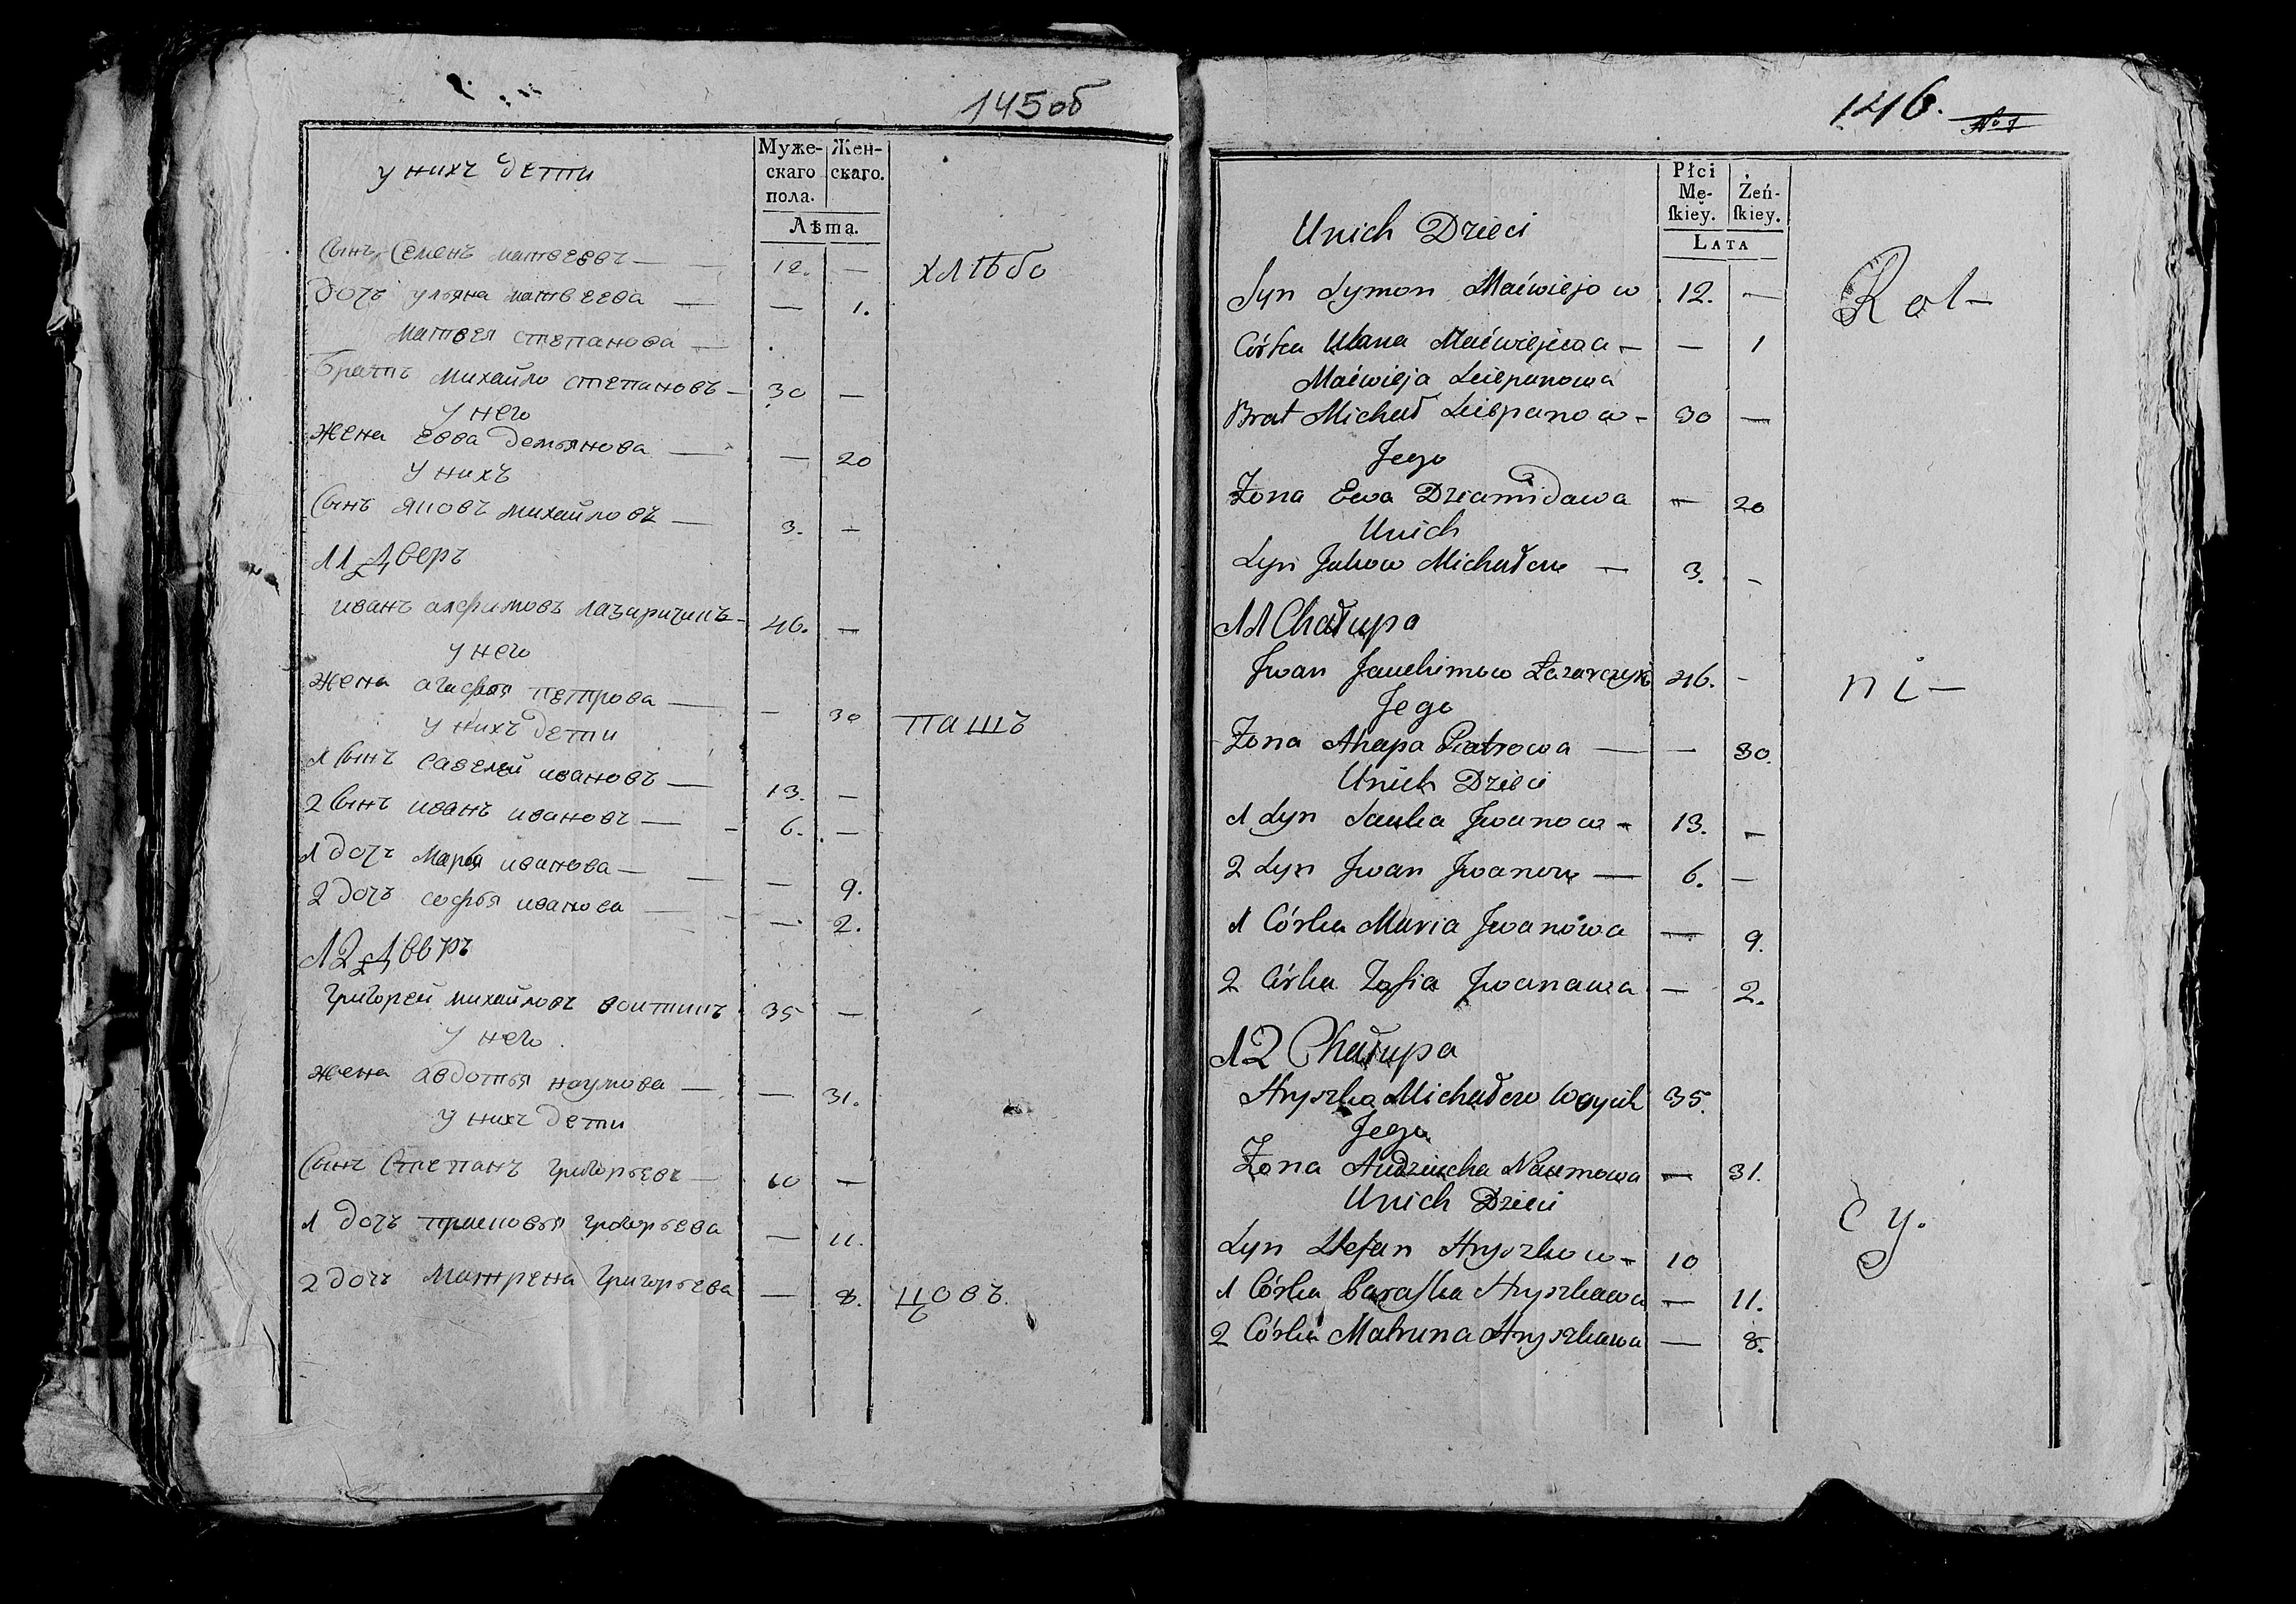 145об
у нихъ дети
Муже-
скаго
пола.
Жен-
скаго.
Лѣта.
Сынъ Семенъ матвеевъ — 12. —
дочъ ульяна матвеева — — 1.
матвея степанова —
Братъ михайло степановъ — 30 —
у него
жена евва демьянова — — 20
у нихъ
Сынъ яковъ михайловъ — 3. —
11 Дверъ
иванъ алфимовъ лазаричикъ — 46. —
у него
жена агафья петрова — — 30
у нихъ дети
1 Сынъ савелей ивановъ — 13. —
2 Сынъ иванъ ивановъ — 6. —
1 дочъ марья иванова — — 9.
2 дочъ софья иванова — — 2.
12 Дверъ
григорей михайловъ воитикъ 35 —
у него
жена авдотья наумова — — 31.
у нихъ дети
Сынъ Степанъ григорьевъ — 10 —
1 дочъ прасковья григорьева — 11.
2 дочъ матрена григорьева — 8.
хлѣбо
пашъ
цовъ.
146.
No 7
Płci
Mę-
ſkiey.
Żeń-
ſkiey.
LATA
Unich Dzieci
Syn Symon Maćwiejow 12. —
Córka Ulana Maćwiejewa — — 1
Maćwieja Sciepanowa
Brat Michał Sciepanow — 30 —
Jego
Zona Ewa Dziamidawa — 20
Unich
Syn Jakow Michałow — 3. —
11 Chałupa
Jwan Jauchimow Łazarczyk 46. —
Jego
Zona Ahapa Piatrowa — — 30.
Unich Dzieci
1 Syn Sauka Jwanow — 13. —
2 Syn Jwan Jwanow — 6. —
1 Córka Maria Jwanowa — 9.
2 Córka Zofia Jwanawa — 2.
12 Chałupa
Hryszka Michałow Woycik 35.
Jego
Zona Audziucha Naumowa — 31.
Unich Dzieci
Syn Stefan Hryszkow — 10
1 Córka Paraſka Hryszkawa — 11.
2 Córka Matruna Hryszkawa — 8.
Rol-
ni-
cy.